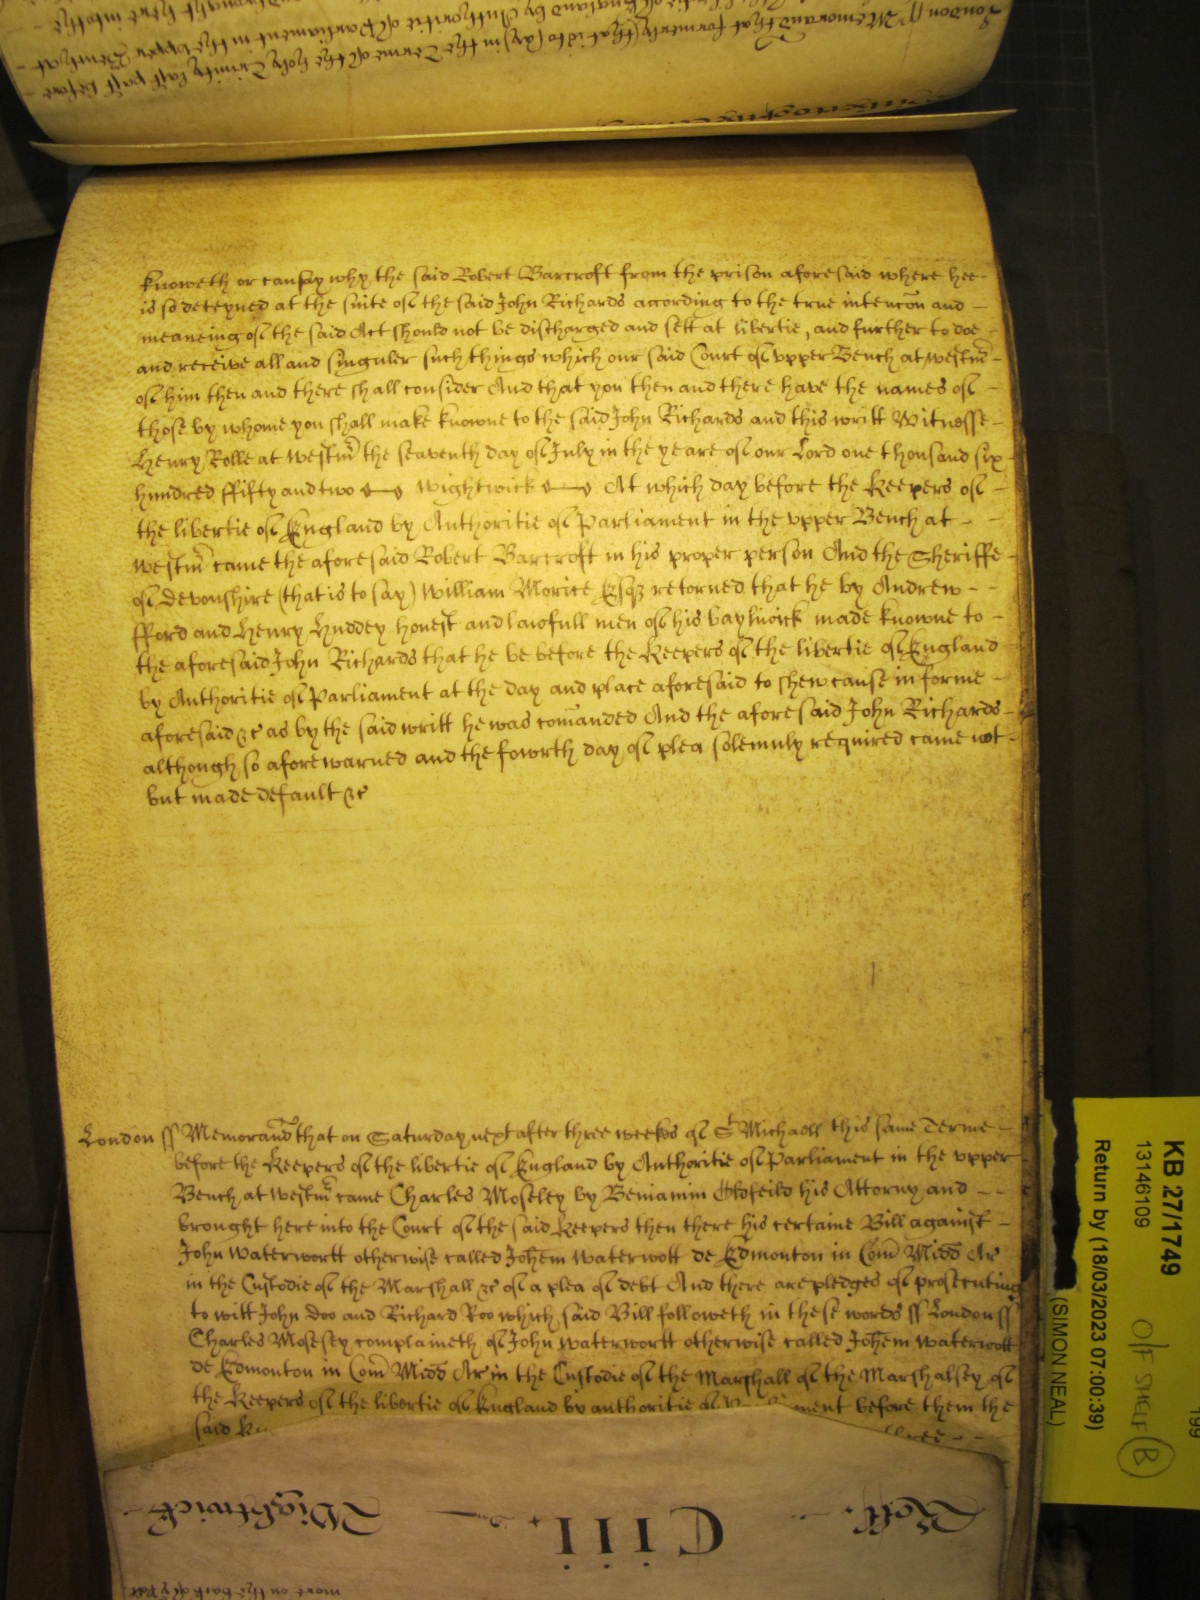 London ss Memorand that formerly (that is to say) in the Terme of the holy Trinity last past before
knoweth or can say why the said Robert Barcroft from the prison aforesaid where hee
is so deteyned at the suite of the said John Richards according to the true intencon and
meaneing of the said Act should not be discharged and sett at libertie, and further to doe
and receive all and singuler such things which our said Court of upper Bench at Westmr
of him then and there shall consider And that you then and there have the names of
those by whome you shall make knowne to the said John Richards and this writt Witnesse
Henry Rolle at Westmr the seaventh day of July in the yeare of our Lord one thousand six
hundred ffifty and two Wightwick At which day before the Keepers of
the libertie of England by Authoritie of Parliament in the upper Bench at
Westmr came the aforesaid Robert Barcroft in his proper person And the Sheriffe
of Devonshire (that is to say) William Morice Esqz retorned that he by Andrew
fford and Henry Huddey honest and lawfull men of his bayliwick made knowne to
the aforesaid John Richards that he be before the Keepers of the libertie of England
by Authoritie of Parliament at the day and place aforesaid to shew cause in forme
aforesaid &c as by the said writt he was comanded And the aforesaid John Richards
although so aforewarned and the fowrth day of plea solemnly required came not
but made default &c
London ss Memorand that on Saturday next after three weekes of St Michaell this same Terme
before the Keepers of the libertie of England by Authoritie of Parliament in the upper
Bench at Westmr came Charles Moseley by Beniamin Oldfeild his Attorny and
brought here into the Court of the said Keepers then there his certaine Bill against
John Waterwortt otherwise called Johem Waterwott de Edmonton in Com Midd Ar
in the Custodie of the Marshall &c of a plea of debt And there are pledges of prosecuting
to witt John Doo and Richard Roo which said Bill followeth in these words ss London ss
Charles Mosesey complaineth of John Waterwortt otherwise called Johem Waterwott
de Edmonton in Com Midd Ar in the Custodie of the Marshall of the Marshalsey of
the Keepers of the libertie of England by authoritie of before them the
said
Roll. Ciii Wightwick
more on the back of
KB 27/1749
13146109
Return by (18/03/2023 07:00:39)
(SIMON NEAL)
O/F SHELF B
199